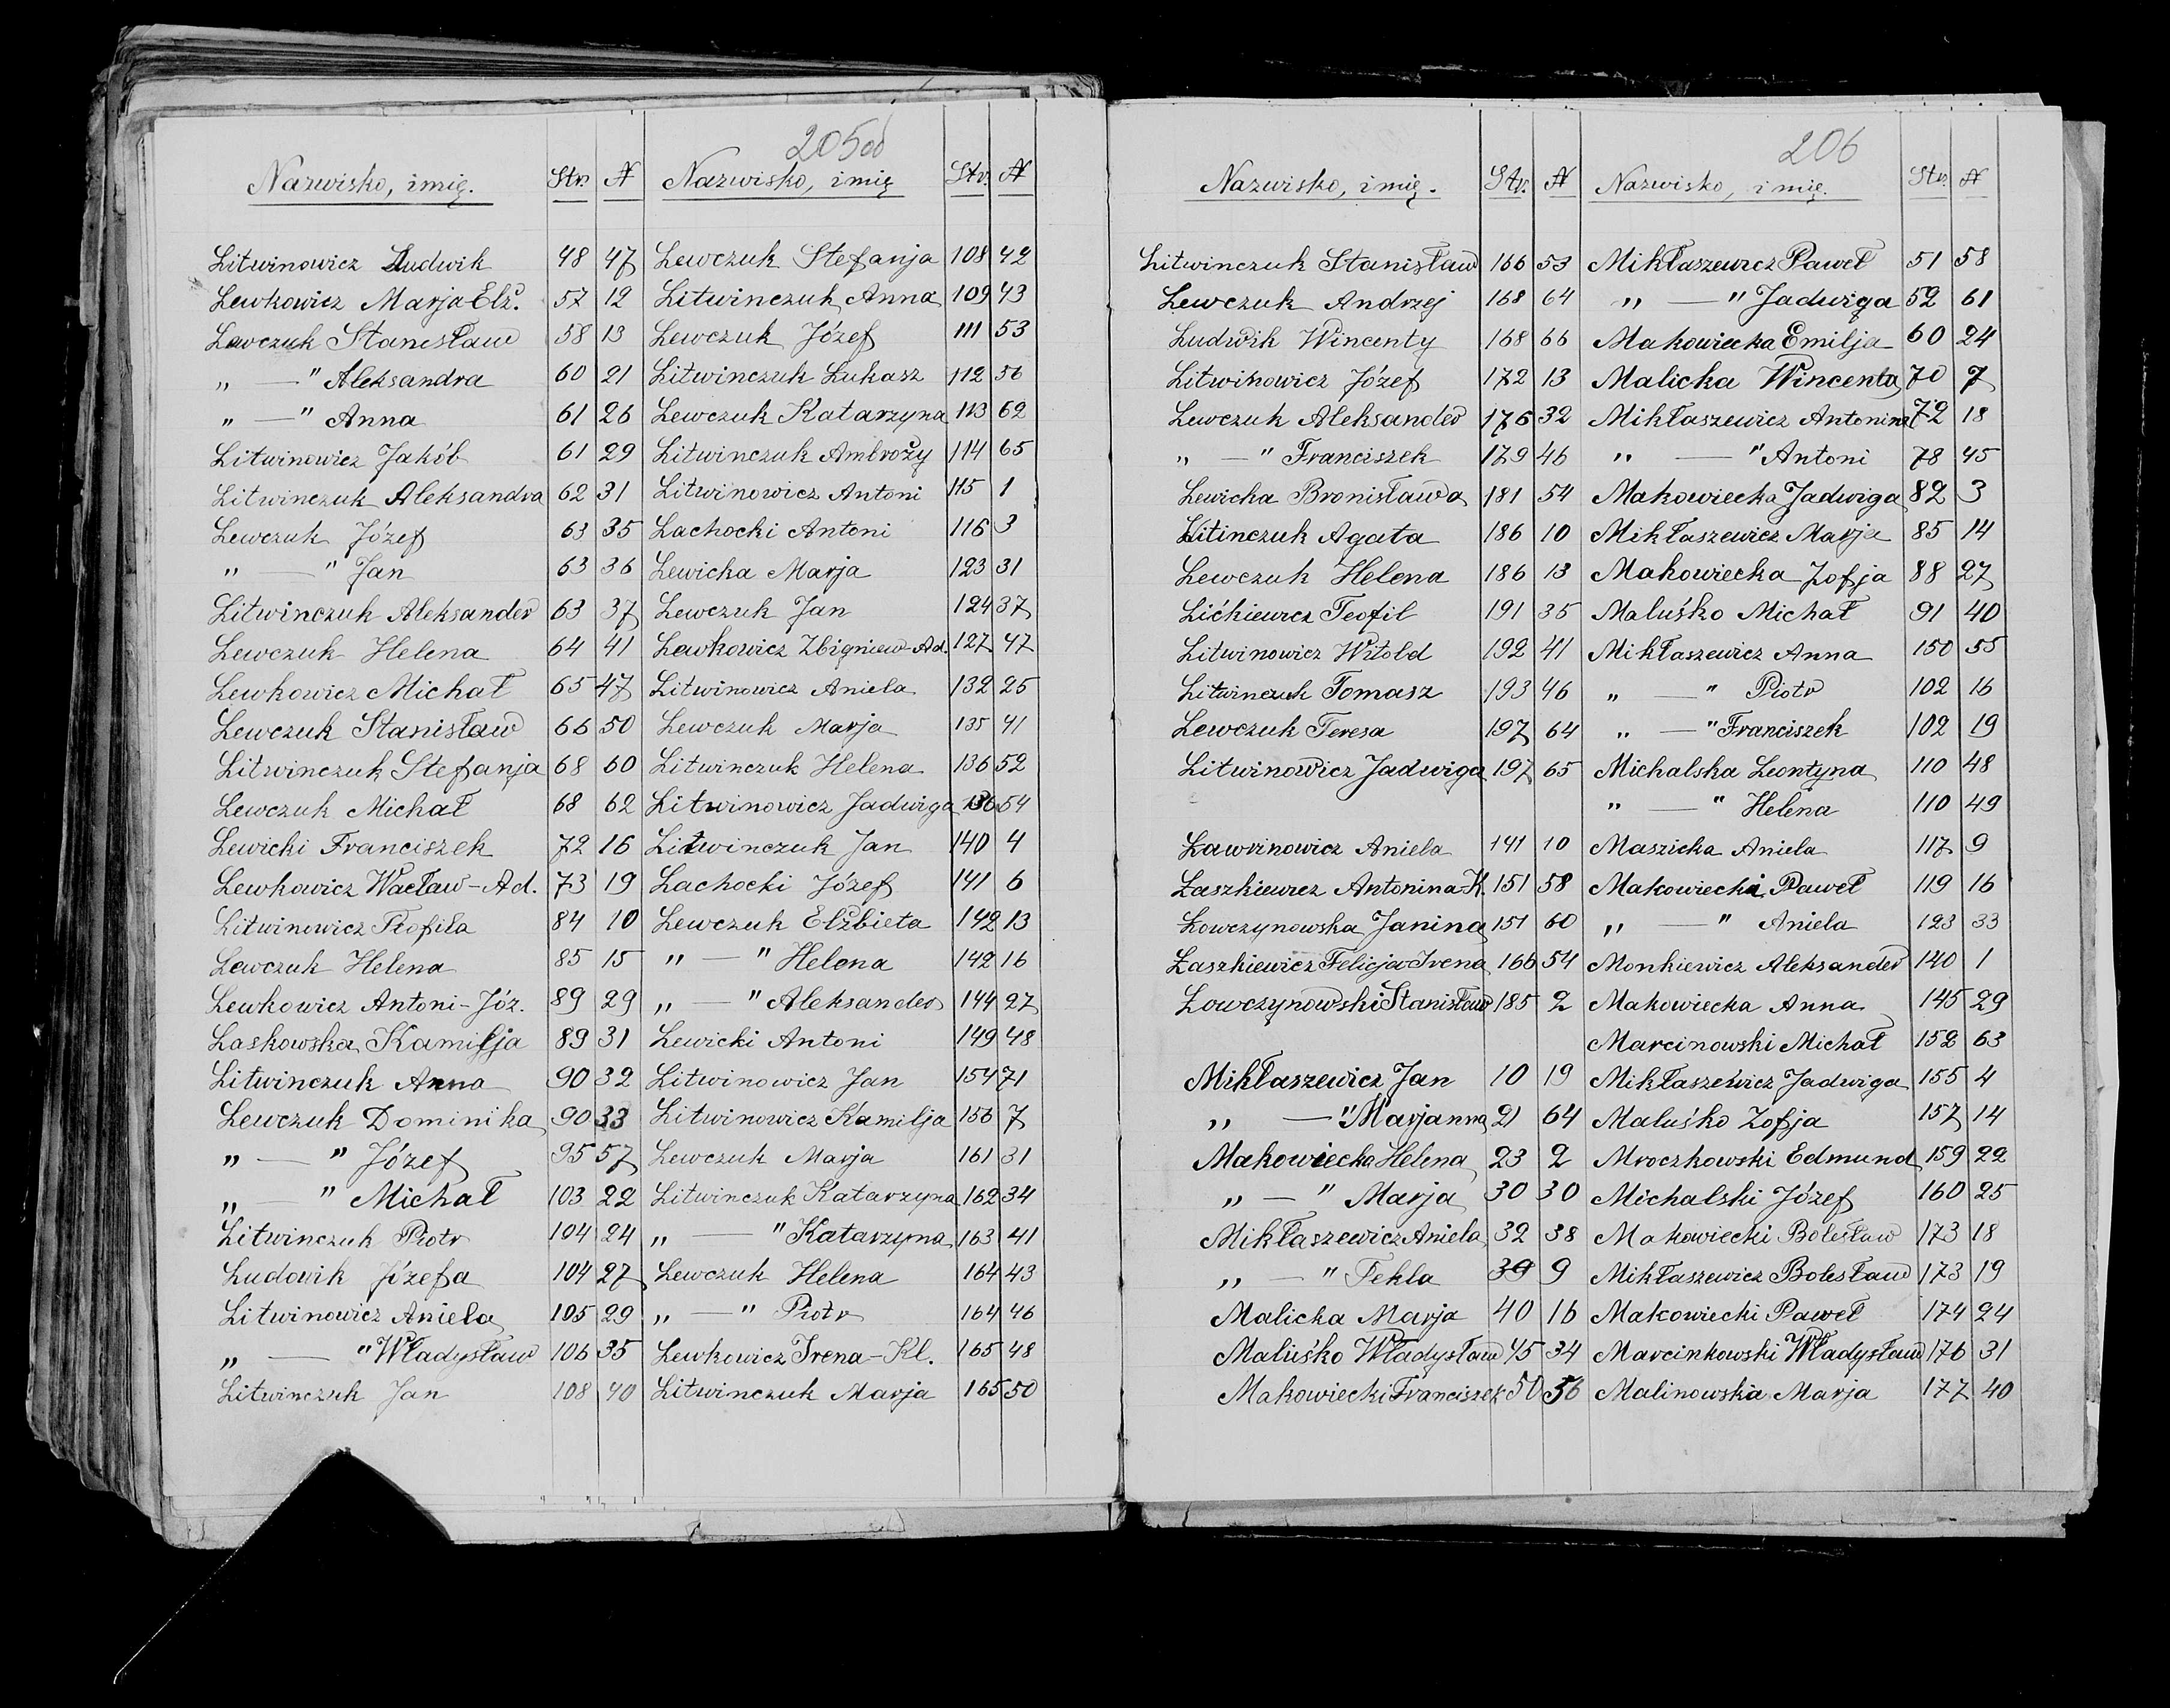 205 od
Nazwisko, imię. Str. N
Litwinowicz Ludwik 48 47
Lewkowicz Marja-Elż. 57 12
Lewczuk Stanisław 58 13
„ — " Aleksandra 60 21
„ — " Anna 61 26
Litwinowicz Jakób 61 29
Litwinczuk Aleksandra 62 31
Lewczuk Józef 63 35
„ — " Jan 63 36
Litwinczuk Aleksander 63 37
Lewczuk Helena 64 41
Lewkowicz Michał 65 47
Lewczuk Stanisław 66 50
Litwinczuk Stefanja 68 60
Lewczuk Michał 68 62
Lewicki Franciszek 72 16
Lewkowicz Wacław-Ad. 73 19
Litwinowicz Teofila 84 10
Lewczuk Helena 85 15
Lewkowicz Antoni-Józ. 89 29
Laskowska Kamilja 89 31
Litwinczuk Anna 90 32
Lewczuk Dominika 90 33
„ — " Józef 95 57
„ — " Michał 103 22
Litwinczuk Piotr 104 24
Ludowik Józefa 104 27
Litwinowicz Aniela 105 29
„ — " Władysław 106 35
Litwinczuk Jan 108 40
Nazwisko, imię Str. N
Lewczuk Stefanja 108 42
Litwinczuk Anna 109 43
Lewczuk Józef 111 53
Litwinczuk Łukasz 112 56
Lewczuk Katarzyna 113 62
Litwinczuk Ambroży 114 65
Litwinowicz Antoni 115 1
Lachocki Antoni 116 3
Lewicka Marja 123 31
Lewczuk Jan 124 37
Lewkowicz Zbigniew-Ad. 127 47
Litwinowicz Aniela 132 25
Lewczuk Marja 135 41
Litwinczuk Helena 136 52
Litwinowicz Jadwiga 136 54
Litwinczuk Jan 140 4
Lachocki Józef 141 6
Lewczuk Elżbieta 142 13
„ — " Helena 142 16
„ — " Aleksander 144 27
Lewicki Antoni 149 48
Litwinowicz Jan 154 71
Litwinowicz Kamilja 156 7
Lewczuk Marja 161 31
Litwinczuk Katarzyna 162 34
„ — " Katarzyna 163 41
Lewczuk Helena 164 43
„ — " Piotr 164 46
Lewkowicz Irena-Kl. 165 48
Litwinczuk Marja 165 50
206
Nazwisko, imię. Str. N
Litwinczuk Stanisław 166 53
Lewczuk Andrzej 168 64
Ludwik Wincenty 168 66
Litwinowicz Józef 172 13
Lewczuk Aleksander 176 32
„ — " Franciszek 179 46
Lewicka Bronisława 181 54
Litinczuk Agata 186 10
Lewczuk Helena 186 13
Lićkiewicz Teofil 191 35
Litwinowicz Witold 192 41
Litwinczuk Tomasz 193 46
Lewczuk Teresa 197 64
Litwinowicz Jadwiga 197 65
Ławrinowicz Aniela 141 10
Łaszkiewicz Antonina-K. 151 58
Łowczynowska Janina 151 60
Łaszkiewicz Felicja-Irena 166 54
Łowczynowski Stanisław 185 2
Mikłaszewicz Jan 10 19
„ — " Marjanna 21 64
Makowiecka Helena 23 2
„ — " Marja 30 30
Mikłaszewicz Aniela 32 38
„ — " Tekla 39 9
Malicka Marja 40 16
Maluśko Władysław 45 34
Makowiecki Franciszek 50 56
Nazwisko, imię. Str. N
Mikłaszewicz Paweł 51 58
„ — " Jadwiga 52 61
Makowiecka Emilja 60 24
Malicka Wincenta 70 7
Mikłaszewicz Antonina 72 18
„ — " Antoni 78 45
Makowiecka Jadwiga 82 3
Mikłaszewicz Marja 85 14
Makowiecka Zofja 88 27
Maluśko Michał 91 40
Mikłaszewicz Anna 150 55
„ — " Piotr 102 16
„ — " Franciszek 102 19
Michalska Leontyna 110 48
„ — " Helena 110 49
Maszicka Aniela 117 9
Makowiecki Paweł 119 16
„ — " Aniela 123 33
Monkiewicz Aleksander 140 1
Makowiecka Anna 145 29
Marcinowski Michał 152 63
Mikłaszewicz Jadwiga 155 4
Maluśko Zofja 157 14
Mroczkowski Edmund 159 22
Michalski Józef 160 25
Makowiecki Bolesław 173 18
Mikłaszewicz Bolesław 173 19
Makowiecki Paweł 174 24
Marcinkowski Władysław 176 31
Malinowska Marja 177 40